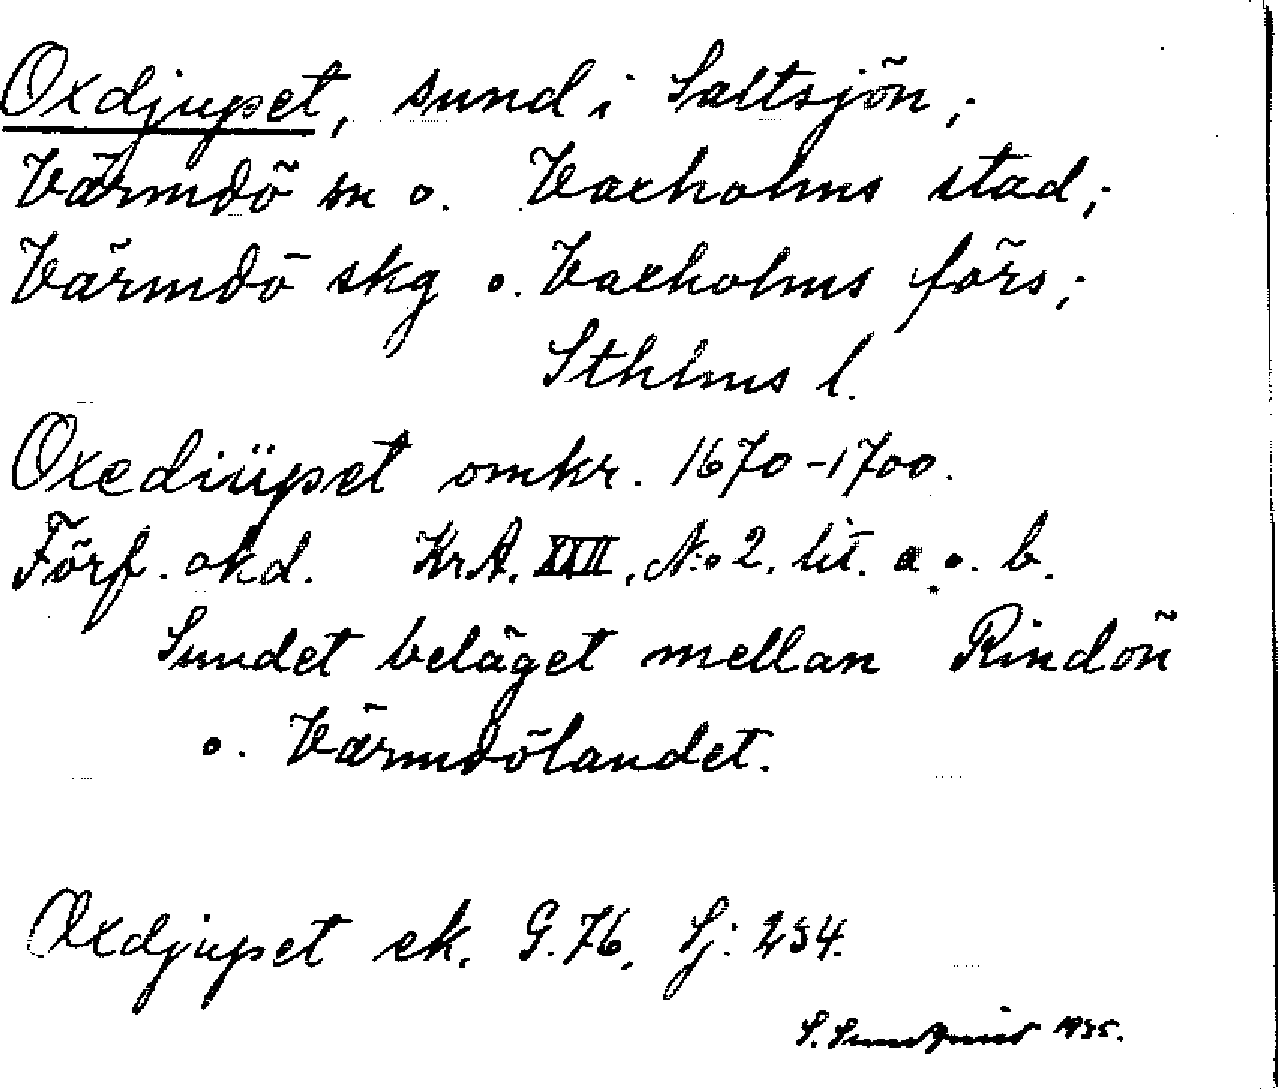 Oxdjupet, sund i Saltsjön;
Värmdö sn o. Vaxholms stad;
Värmdö skg o. Vaxholms förs;
Sthlms l.
Oxediüpet omkr. 1670-1700.
Förf. okd. KrA. XIII, N:o 2. lit. a. o. b.
Sundet beläget mellan Rindön
o. Värmdölandet.
Oxdjupet ek. G. 76. Sj: 234.
S. Sundquist 1935.